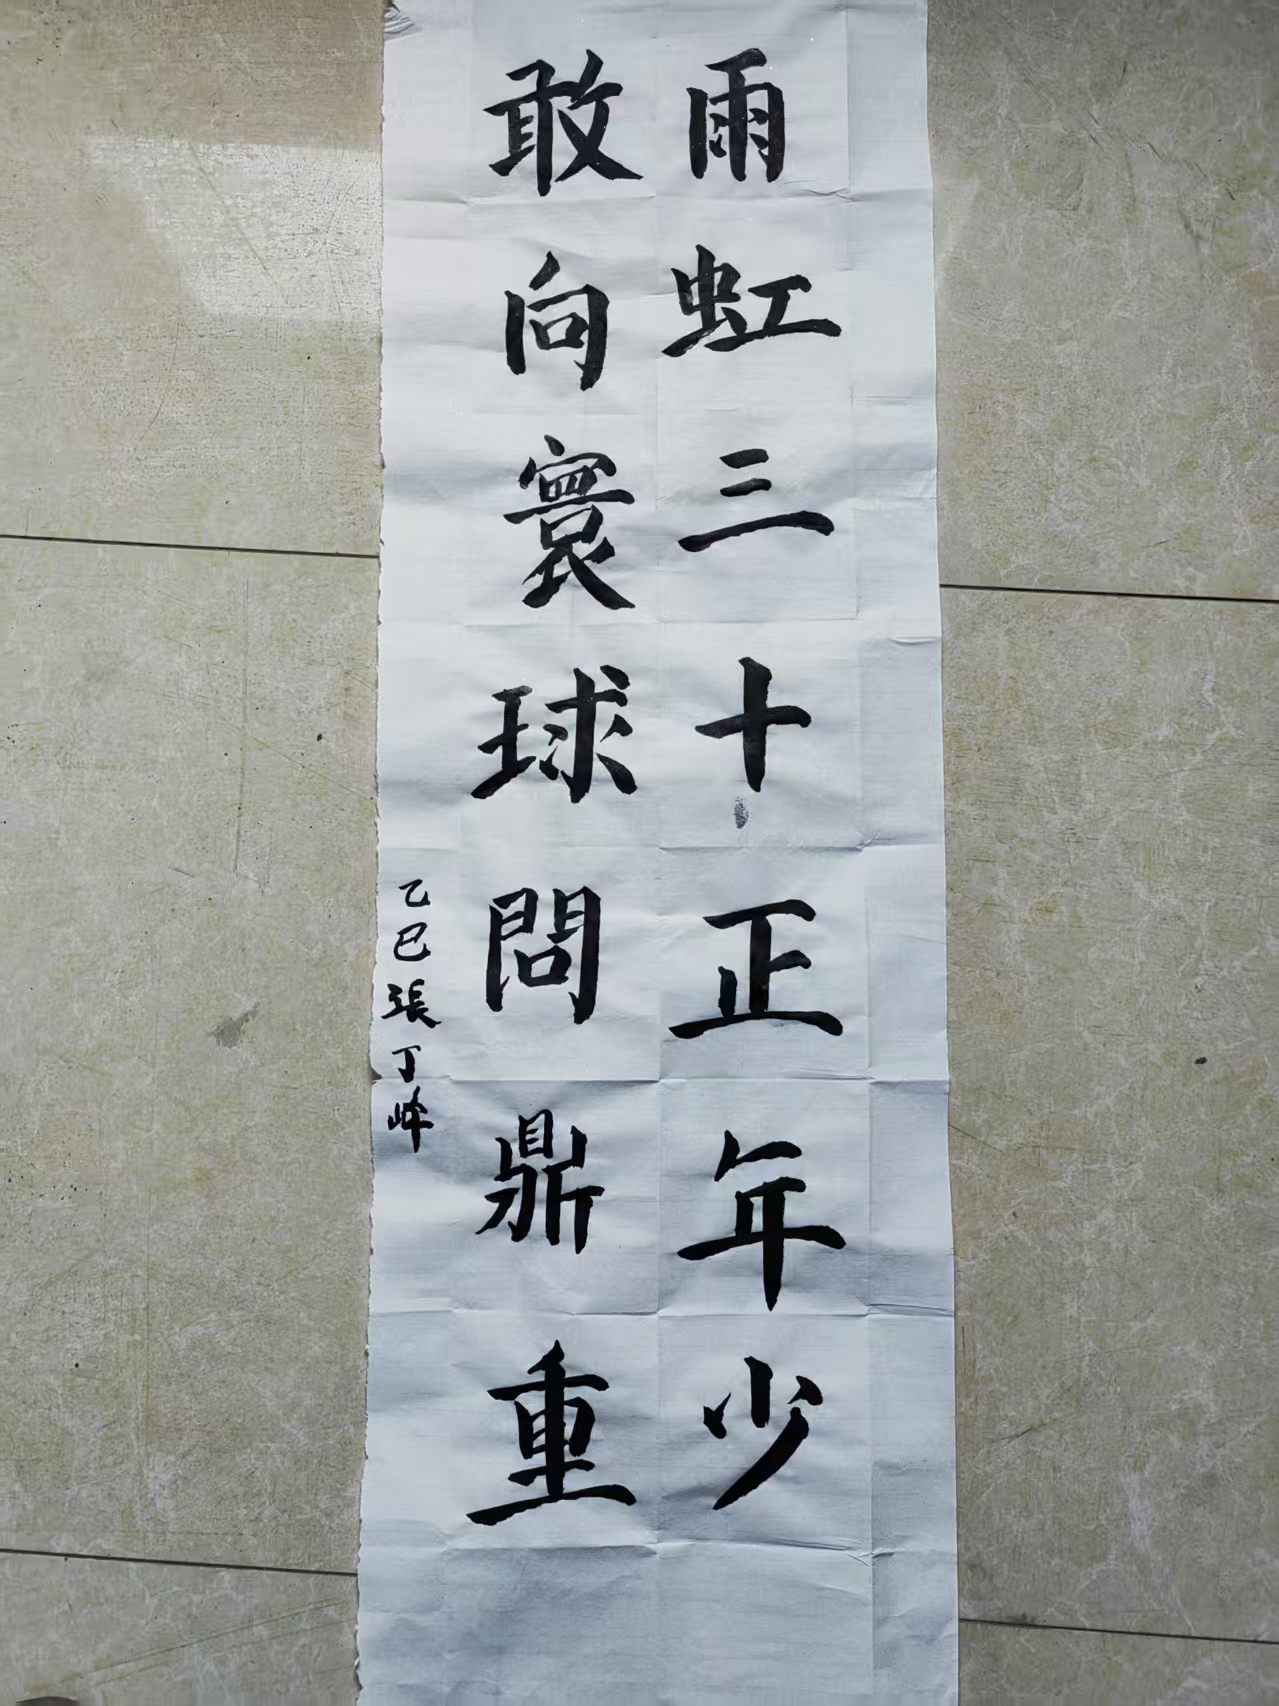 雨虹三十正年少
敢向寰球問鼎重
乙巳張丁峰